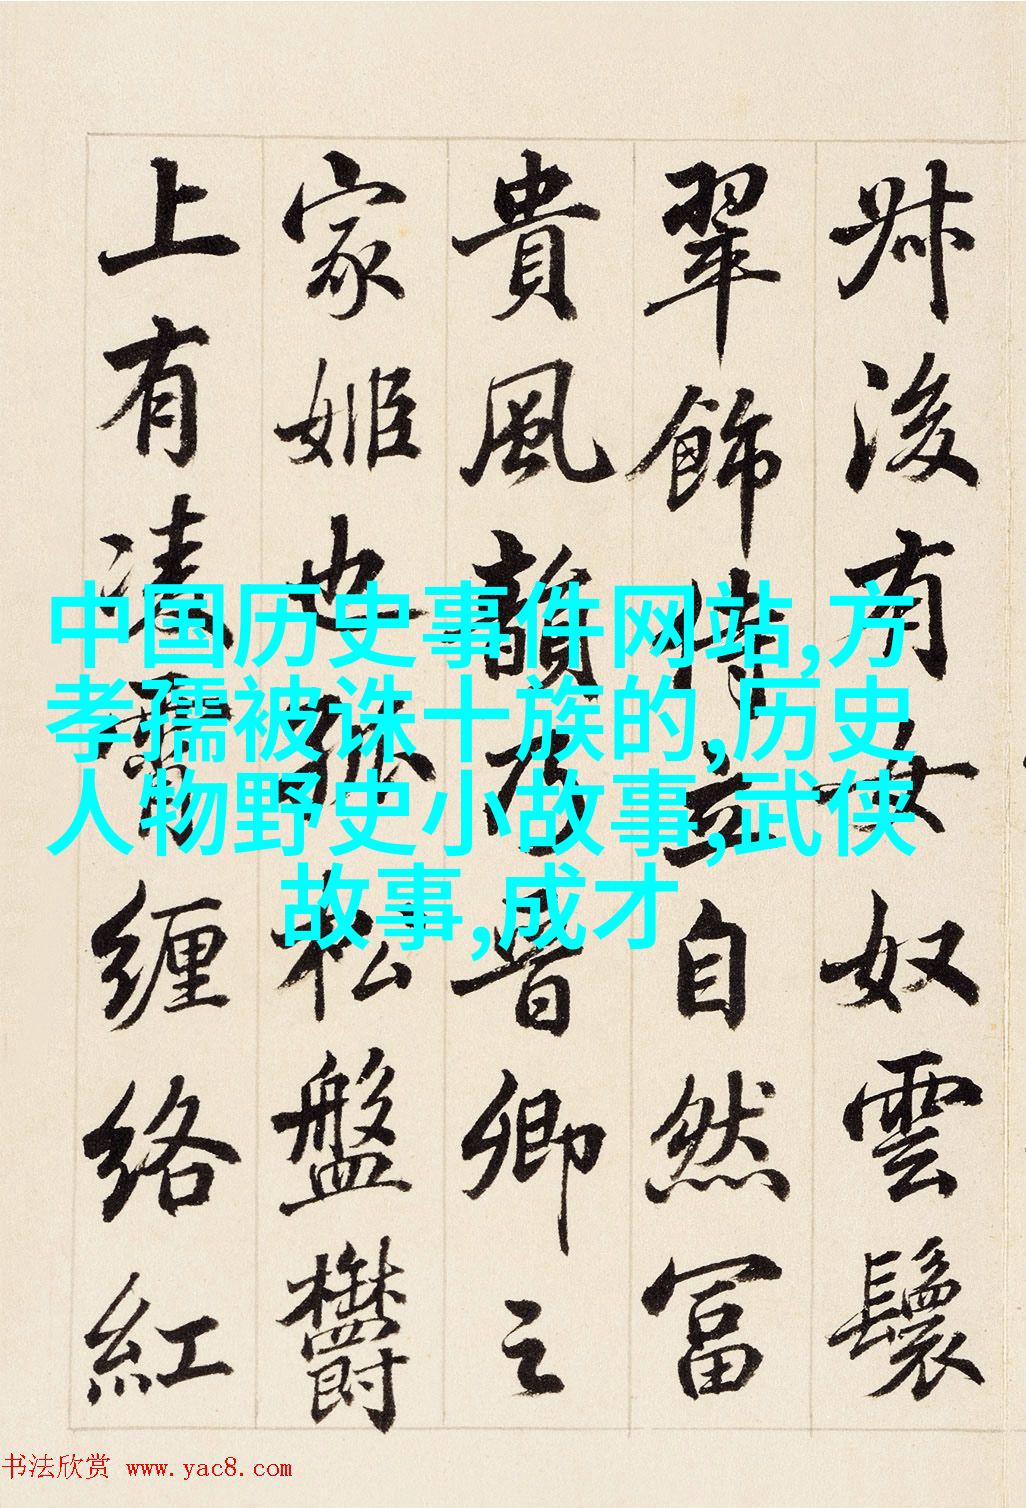 叔後有女奴雲鬟
翠飾侍立自然富
貴風韻乃晉卿之
家姬也孤松盤鬱
上有凌霄纏絡紅
中国历史事件网站,方
孝孺被诛十族的,历史
人物野史小故事,武侠
故事,成才
书法欣赏 www.yac8.com